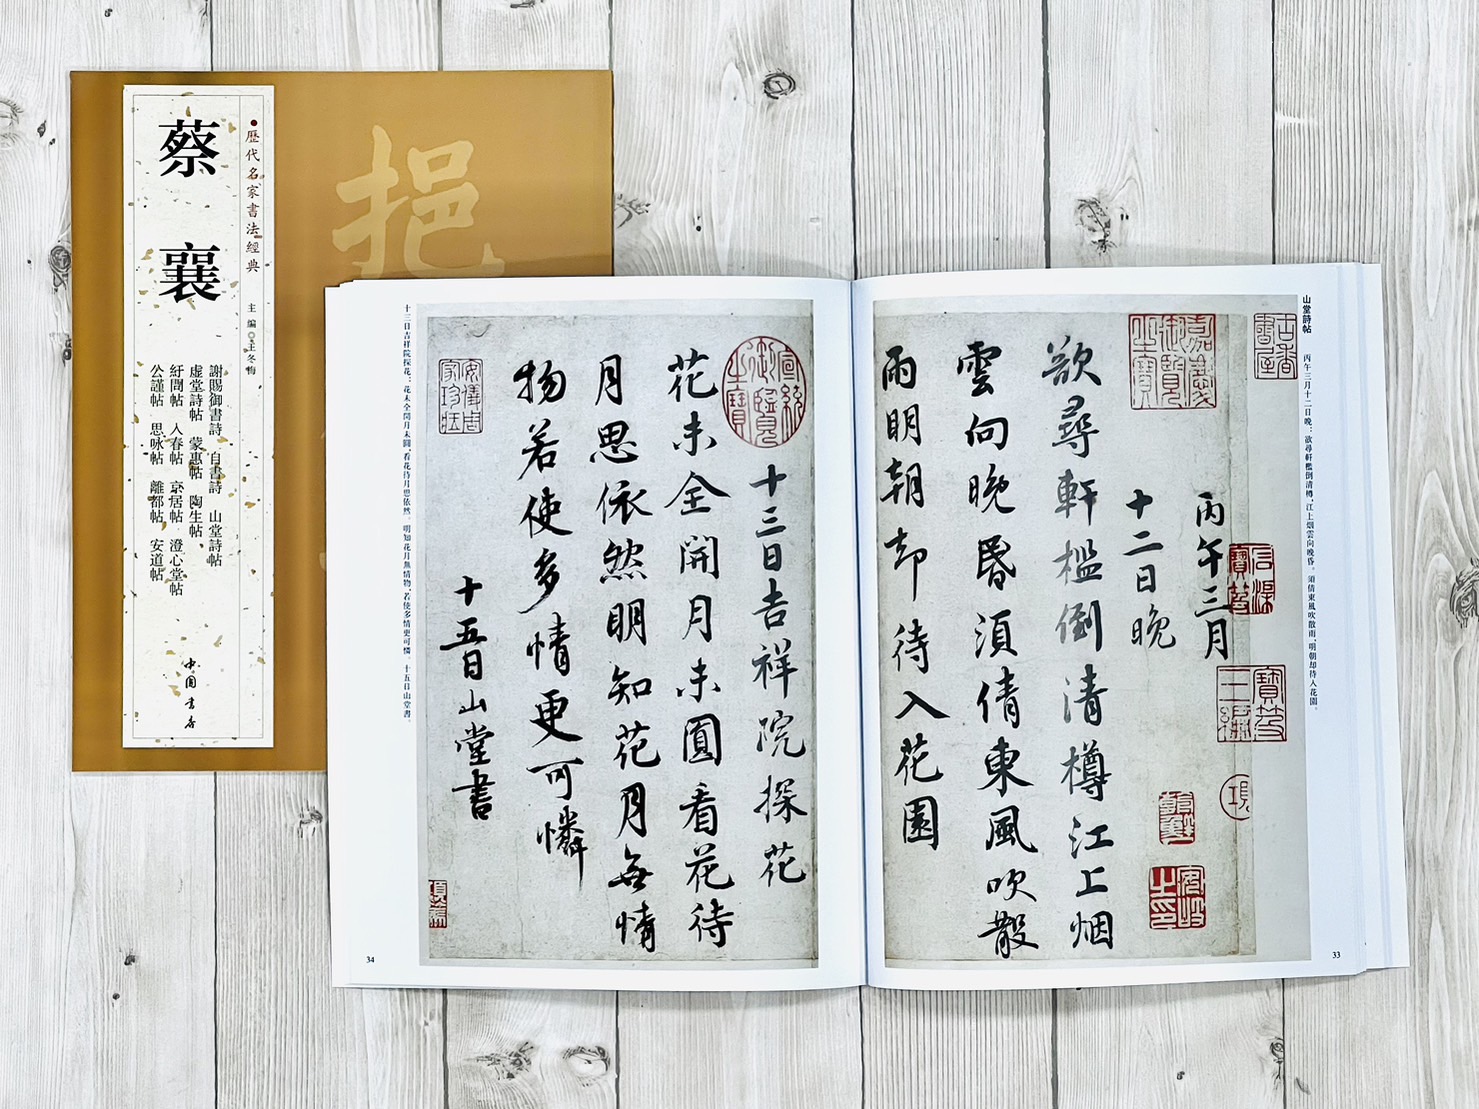 歷代名家書法經典
主編◎王冬梅
蔡襄
謝賜御書詩 自書詩 山堂詩帖
虛堂詩帖 蒙惠帖 陶生帖
紆問帖 入春帖 京居帖 澄心堂帖
公謹帖 思咏帖 離都帖 安道帖
中国書店
挹
山堂詩帖 丙午三月十二日晚：欲尋軒檻倒清樽，江上烟雲向晚昏。須倩東風吹散雨，明朝却待入花園。
古香書屋
嘉慶御覽之寶
丙午三月
十二日晚
欲尋軒檻倒清樽江上烟
雲向晚昏須倩東風吹散
雨明朝却待入花園
33
宣統御覽之寶
十三日吉祥院探花
花未全開月未圓看花待
月思依然明知花月無情
物若使多情更可憐
十五日山堂書
安儀周家珍藏
十三日吉祥院探花：花未全開月未圓，看花待月思依然。明知花月無情物，若使多情更可憐。十五日山堂書。
34